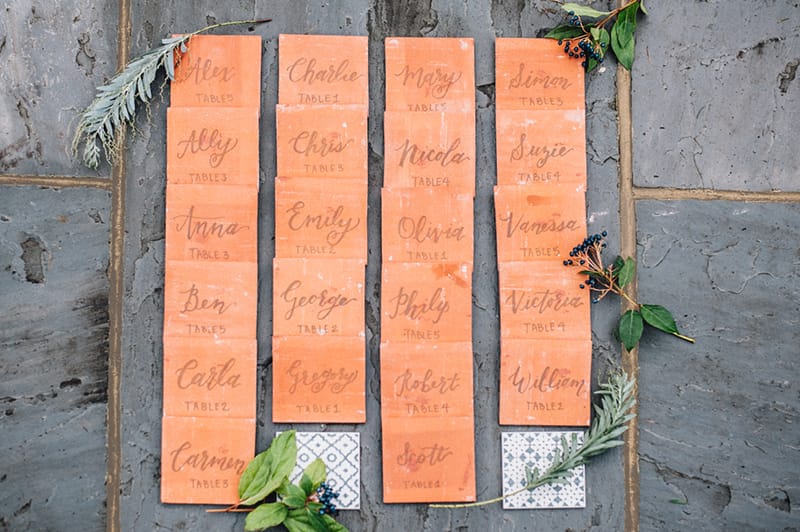 Alex
TABLE5
Ally
TABLE3
Anna
TABLE3
Ben
TABLE5
Carla
TABLE2
Carmen
TABLE3
Charlie
TABLE1
Chris
TABLE3
Emily
TABLE2
George
TABLE2
Gregory
TABLE1
Mary
TABLE5
Nicola
TABLE4
Olivia
TABLE1
Philip
TABLE5
Robert
TABLE4
Scott
TABLE1
Simon
TABLE3
Suzie
TABLE4
Vanessa
TABLE5
Victoria
TABLE4
William
TABLE2